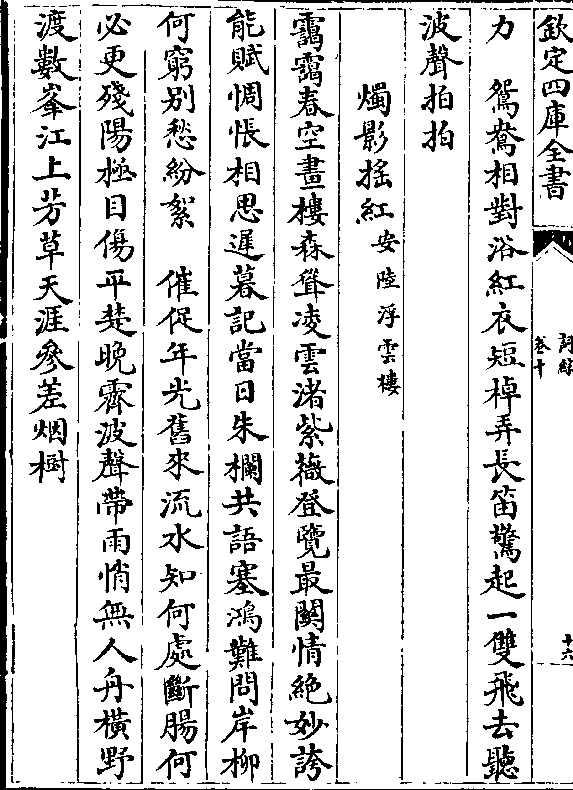 欽定四庫全書
詞綜
卷十
十六
力　鴛鴦相對浴紅衣短棹弄長笛驚起一雙飛去聽
波聲拍拍
燭影搖紅安陸浮雲樓
靄靄春空畫樓森聳凌雲渚紫薇登覽最關情絶妙誇
能賦惆悵相思遲暮記當日朱欄共語塞鴻難問岸柳
何窮别愁紛絮　催促年光舊來流水知何處斷腸何
必更殘陽極目傷平楚晚霽波聲帶雨悄無人舟橫野
渡數峯江上芳草天涯參差烟樹